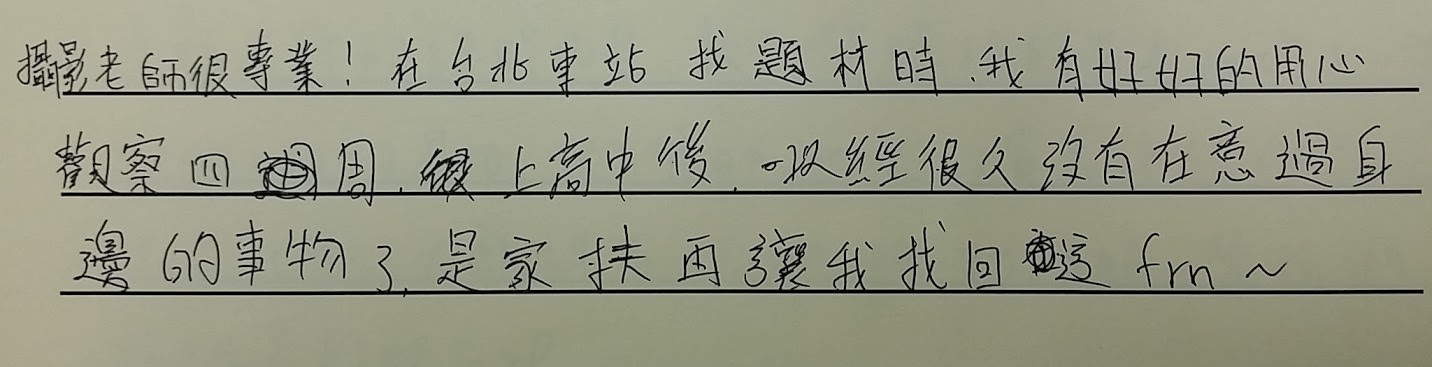 攝影老師很專業！在台北車站找題材時，我有好好的用心
觀察四周，上高中後，以經很久沒有在意過身
邊的事物了，是家扶再讓我找回這frn～